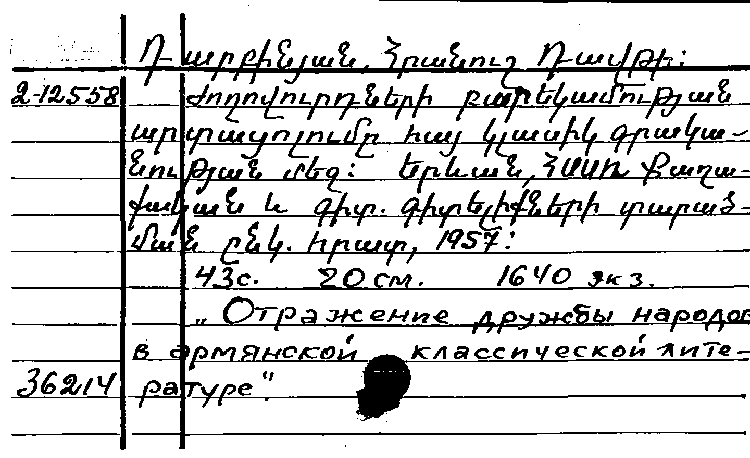 Դարբինյան, Հրանուշ Դավթի:
2-12558 Ժողովուրդների բարեկամության
արտացոլումը հայ կլասիկ գրակա-
նության մեջ: Երևան, ՀՍՍՌ Քաղա-
քական և գիտ. գիտելիքների տարած-
ման ընկ. հրատ, 1957:
43с. 20 см. 1640 экз.
„Отражение дружбы народов
в армянской классической лите-
36214 ратуре".